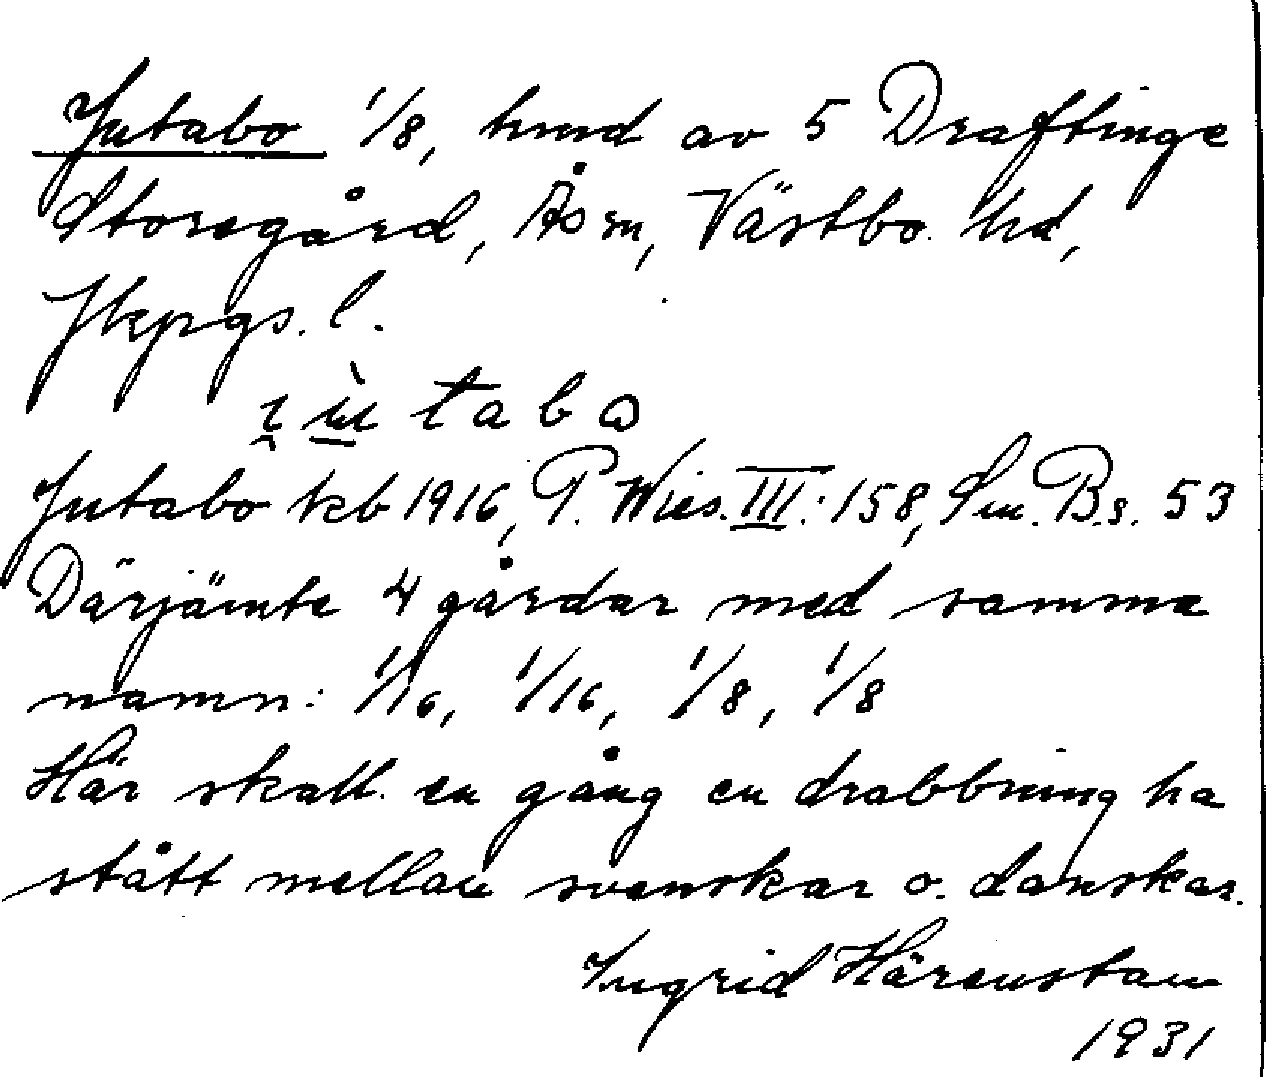 Jutabo 1/8, hmd av 5 Draftinge
Storegård, Ås sn, Västbo hd,
Jkpgs. l.
tabo
Jutabo kb 1916, P. Wies. III: 158, Sm. B.s. 53
Därjämte 4 gårdar med samma
namn: 1/16, 1/16, 1/8, 1/8
Här skall en gång en drabbning ha
stått mellan svenskar o. danskar.
Ingrid Härenstam
1931